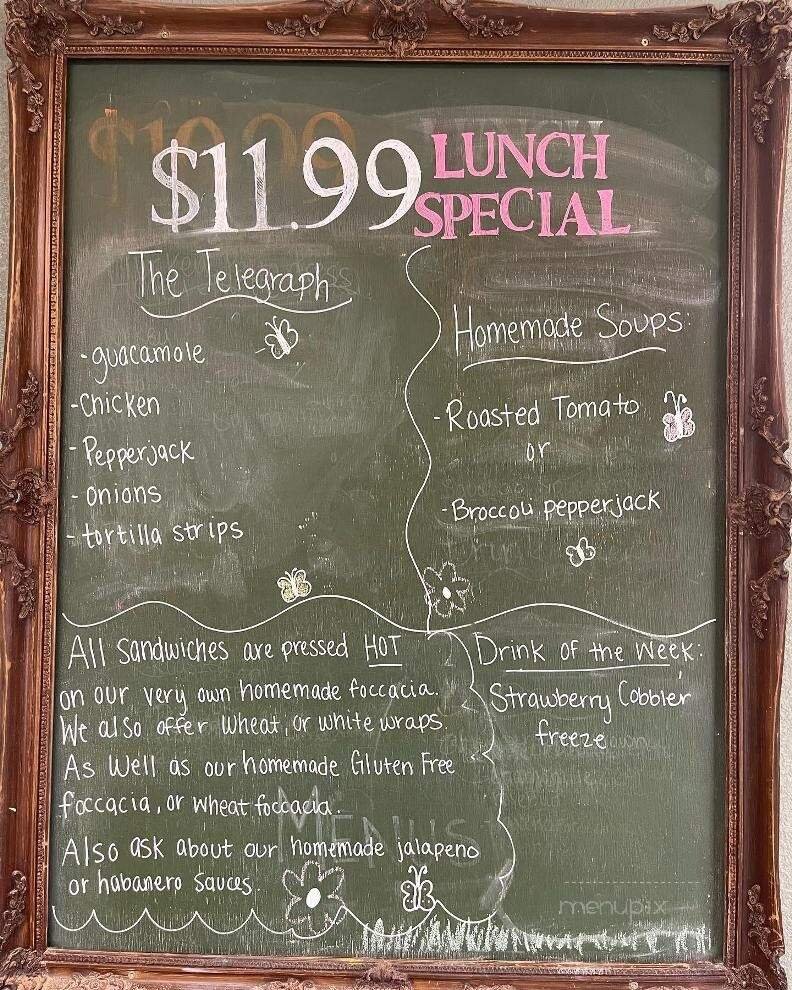 $10.99
$11.99 LUNCH
SPECIAL
The Telegraph
-guacamole
-Chicken
-Pepperjack
-onions
-tortilla strips
Homemade Soups:
-Roasted Tomato
or
-Broccoli pepperjack
All Sandwiches are pressed HOT
on our very own homemade foccacia.
We also offer wheat, or white wraps.
As Well as our homemade Gluten Free
foccacia, or wheat foccacia.
Also ask about our homemade jalapeno
or habanero Sauces.
Drink of the Week:
Strawberry Cobbler
freeze
MENUS
menupix